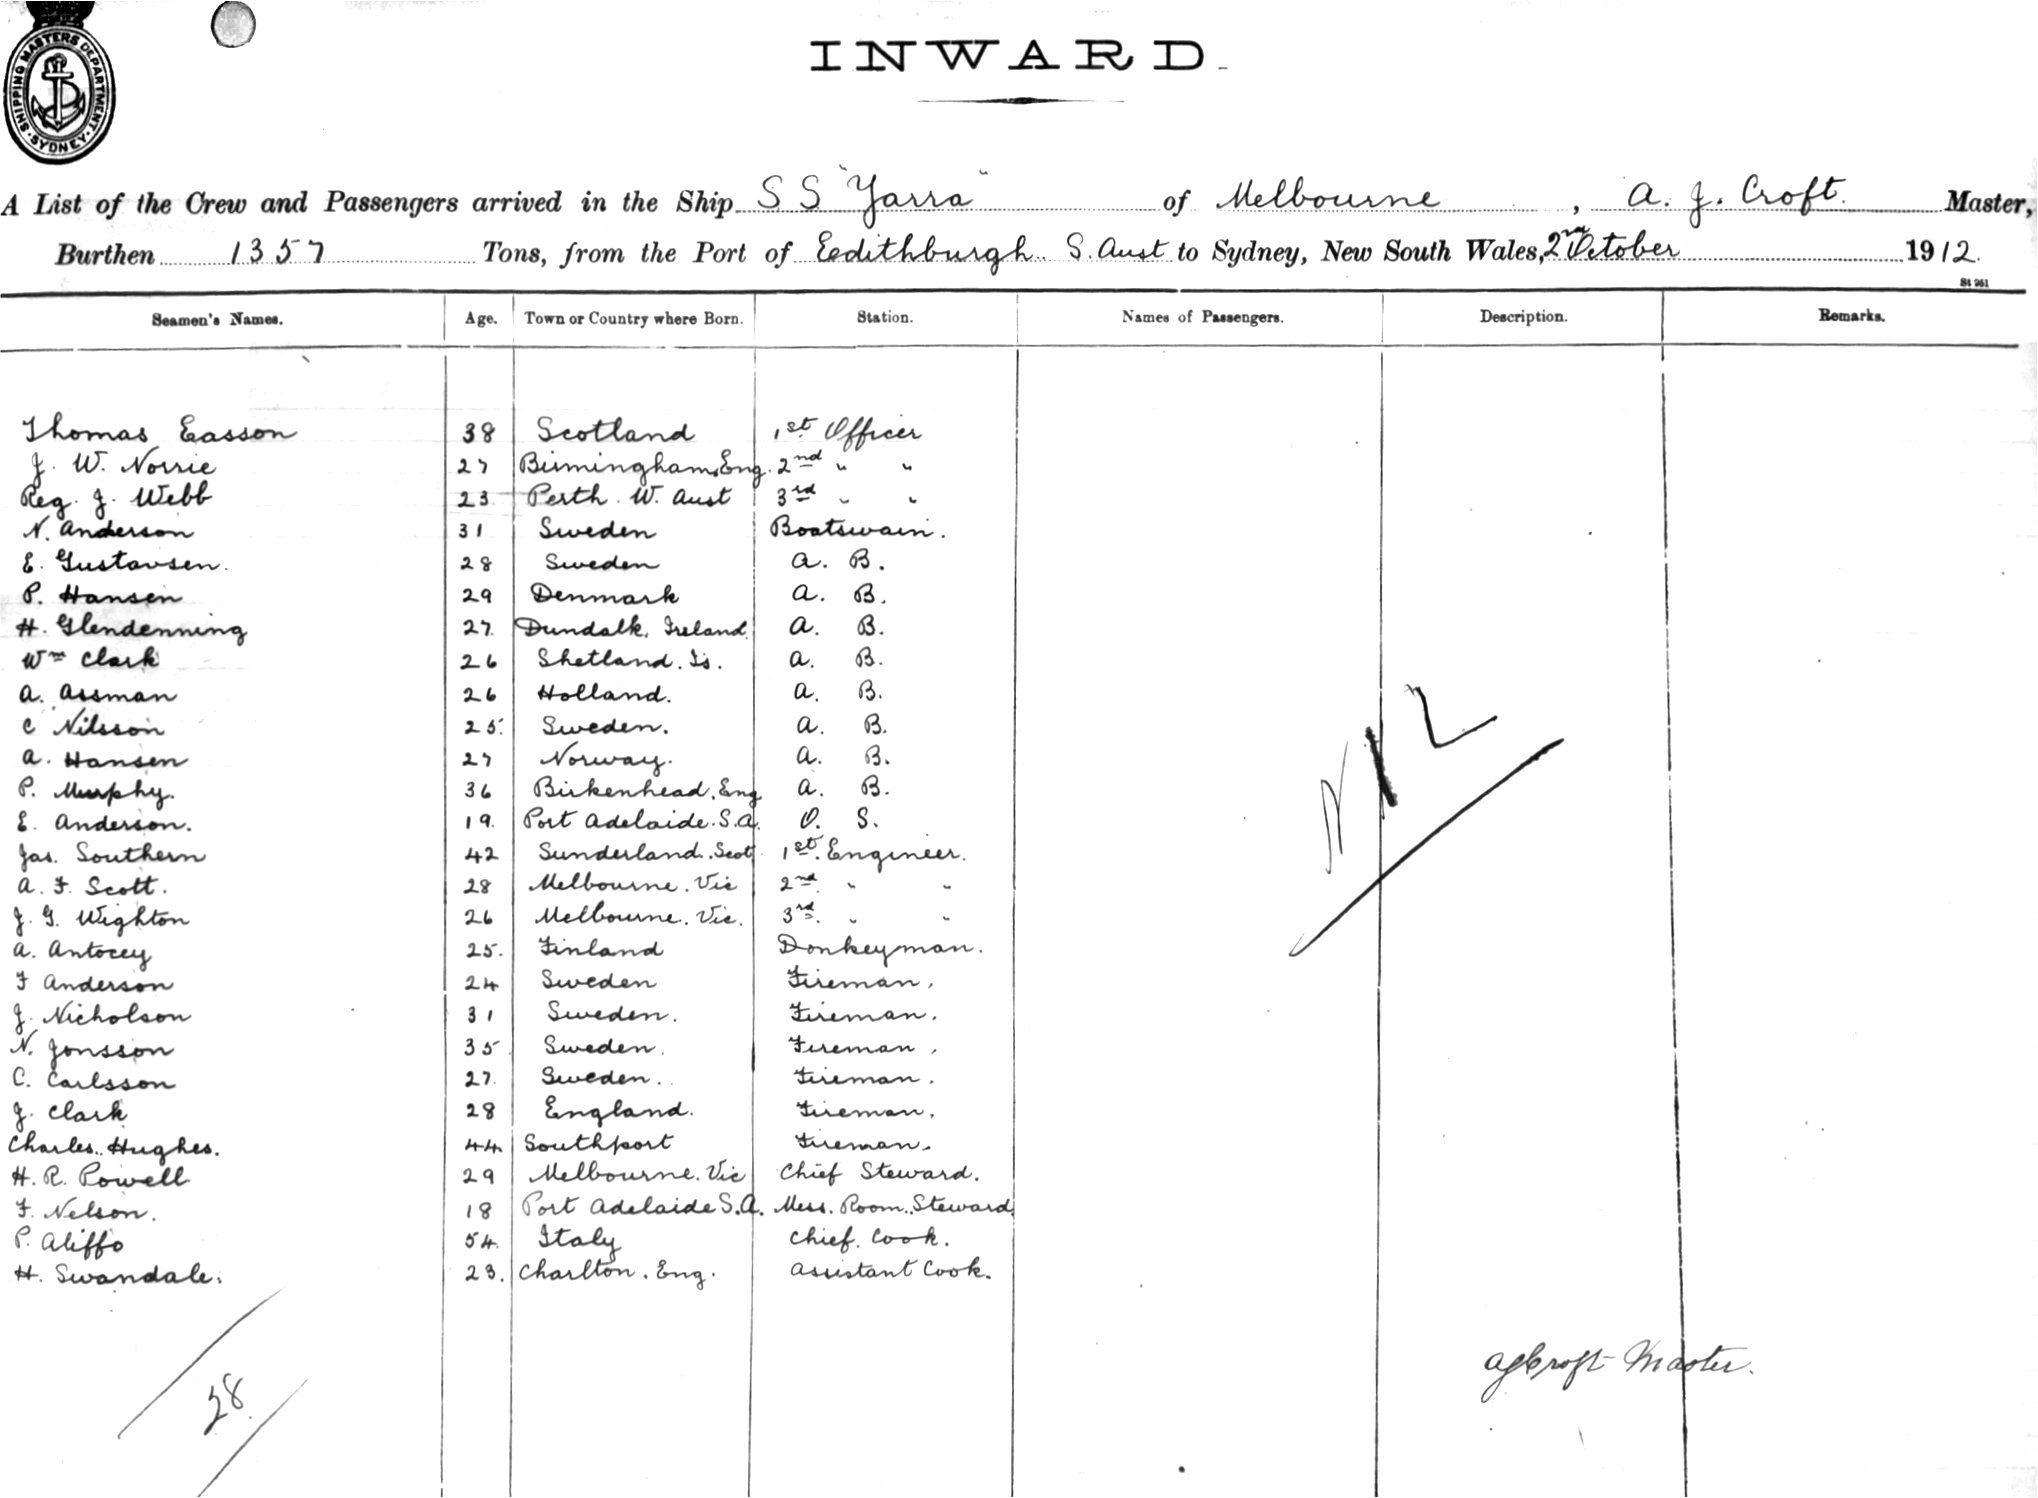 SHIPPING MASTERS DEPARTMENT. SYDNEY
INWARD.
A List of the Crew and Passengers arrived in the Ship S S "Yarra" of Melbourne, A. J. Croft. Master,
Burthen 1357 Tons, from the Port of Eedithburgh S. Aust to Sydney, New South Wales, 2nd October 1912.
St 961
Seamen's Names. Age. Town or Country where Born. Station. Names of Passengers. Description. Remarks.
Thomas Easson 38 Scotland 1st Officer
J. W. Norrie 27 Birmingham, Eng. 2nd " "
Reg. J. Webb 23 Perth. W. Aust 3rd " "
N. Anderson 31 Sweden Boatswain.
E. Gustavsen. 28 Sweden A. B.
P. Hansen 29 Denmark A. B.
H. Glendenning 27. Dundalk, Ireland A. B.
Wm Clark 26 Shetland. Is. A. B.
A. Assman 26 Holland. A. B.
C Nilsson 25. Sweden. A. B.
A. Hansen 27 Norway. A. B.
P. Murphy. 36 Birkenhead, Eng A. B.
E. Anderson. 19. Port Adelaide. S.A. O. S.
Jas. Southern 42 Sunderland. Scot 1st. Engineer.
A. F. Scott. 28 Melbourne. Vic 2nd. " "
J. G. Wighton 26 Melbourne. Vic. 3rd. " "
A. Antocey 25. Finland Donkeyman.
F Anderson 24 Sweden Fireman.
J. Nicholson 31 Sweden. Fireman.
N. Jonsson 35 Sweden. Fireman.
C. Carlsson 27. Sweden. Fireman.
J. Clark 28 England. Fireman.
Charles. Hughes. 44. Southport Fireman.
H. R. Powell 29 Melbourne. Vic Chief Steward.
F. Nelson. 18 Port Adelaide S.A. Mess. Room. Steward.
P. Aliffo 54. Italy Chief. Cook.
H. Swandale. 23. Charlton. Eng. Assistant Cook.
AJCroft Master.
28